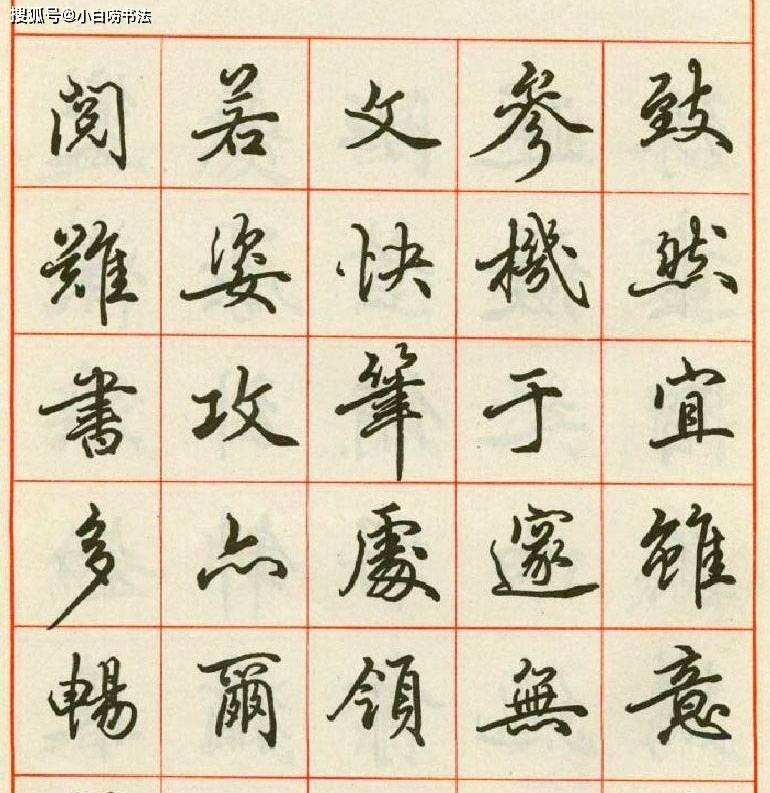 搜狐号@小白唠书法
致然宜雖意
參機于邃無
文快筆處領
若姿攻亦爾
閱難書多暢